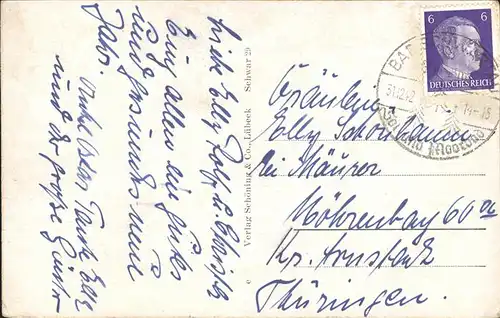 Liebe Elly, Rolf u. Christl
Euch allen ein gutes
und gesundes neues
Jahr.
Onkel Oskar Tante Elli
und der große Günter
© Verlag Schöning & Co., Lübeck Schwar 29
6 6
DEUTSCHES REICH
31.12.42
Fräulein
Elly Schönhamm
bei Mäurer
Möhrenbach 60
Kr. Arnstadt
Thüringen.